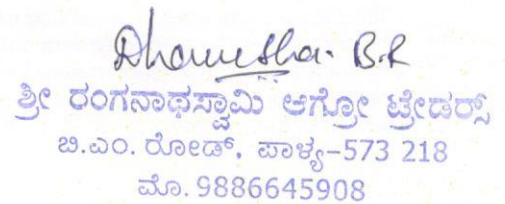 Dhamesha. B.R
ಶ್ರೀ ರಂಗನಾಥಸ್ವಾಮಿ ಆಗ್ರೋ ಟ್ರೇಡರ್ಸ್
ಬಿ.ಎಂ. ರೋಡ್, ಪಾಳ್ಯ-573 218
ಮೊ. 9886645908